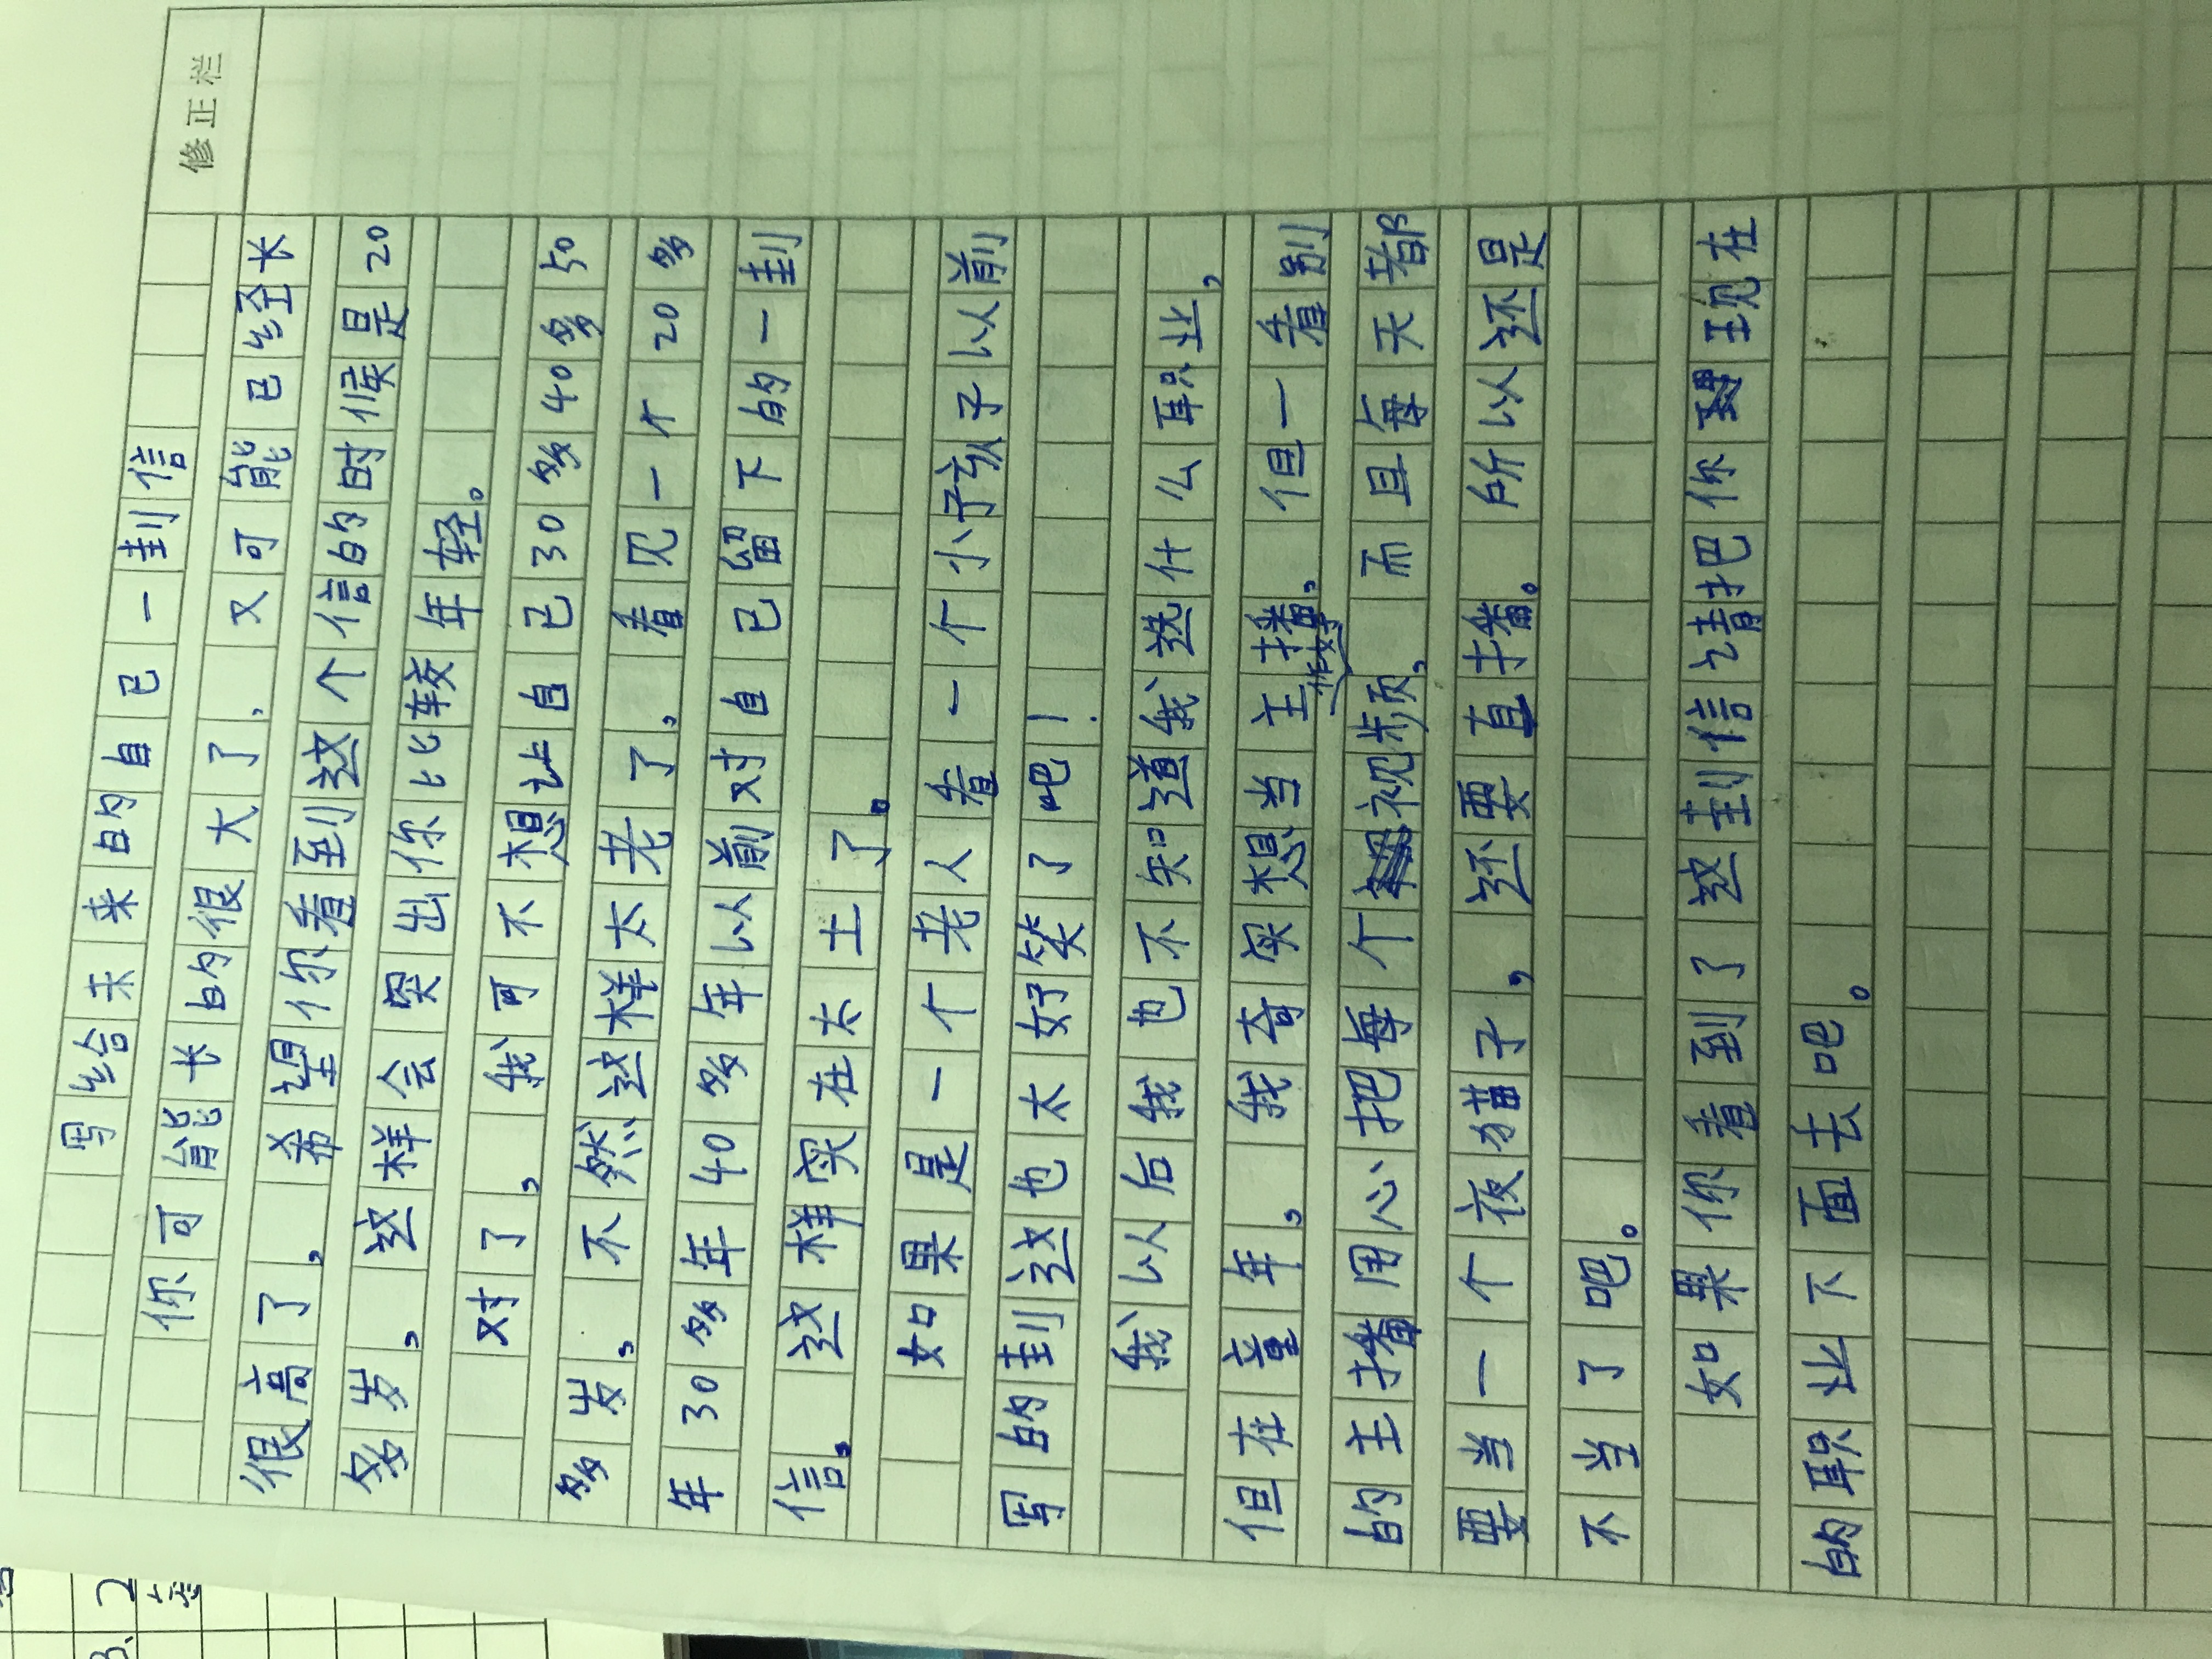 修正栏
写给未来的自己一封信
你可能长的很大了，又可能已经长
很高了，希望你你看到这个信的时候是20
多岁，这样会突出你比较年轻。
对了，我可不想让自己30多40多50
多岁，不然这样太老了，看见一个20多
年30多年40多年以前对自己留下的一封
信，这样实在太土了。
如果是一个老人看一个小孩子以前
写的封这也太好笑了吧！
我以后我也不知道我选什么职业，
但在童年，我夸实想当主播。但一看别
的主播用心把每个视频，而且每天都
要当一个夜猫子，还要直播。所以还是
不当了吧。
如果你看到了这封信请把你现在
的职业下面去吧。